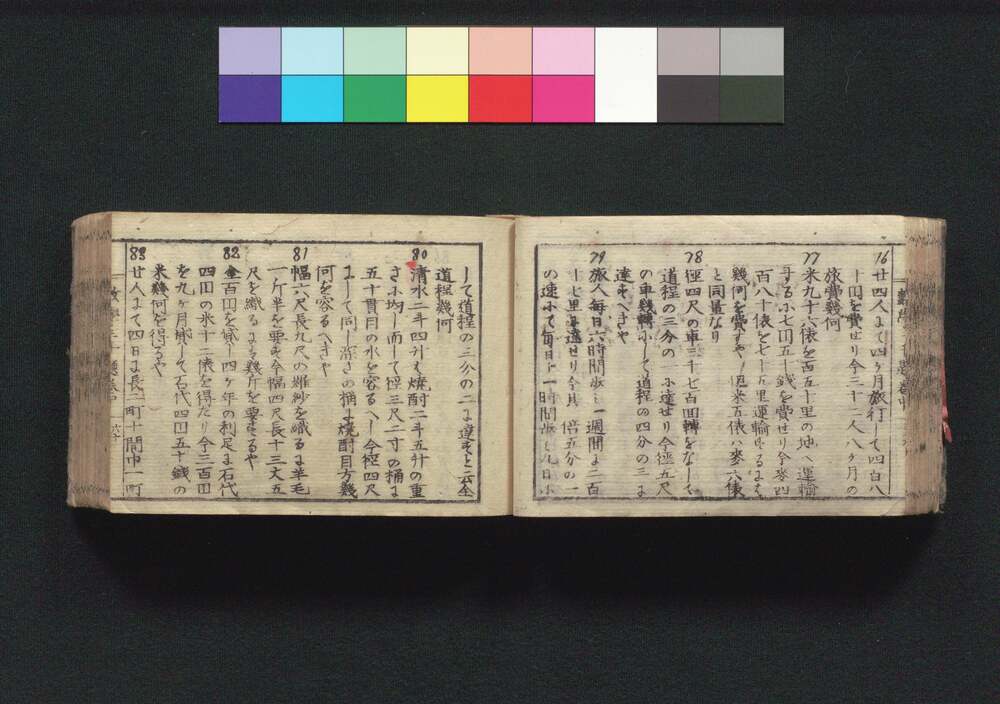 76
廿四人にて四ヶ月旅行して四百八
十円を費せり今三十二人八ヶ月の
旅費幾何
77
米九十六俵を西五十里の地へ運輸
するに七円五十銭を費せり今麦四
百八十俵を七十五里運輸するには
幾何を費すや但米五俵は麦六俵
と同量なり
78
径四尺の車三千七百回轉をなして
道程の三分の一に達せり今径五尺
の車幾轉にして道程の四分の三に
達すへきや
79
旅人毎日六時間歩し一週間に三百
十七里に達せり今其一倍五分の一
の速にて毎日十一時間歩し九日に
して道程の三分の二に達すと云全
道程幾何
80
清水二斗四升と焼酎二斗五升の重
さ相均し而して径三尺二寸の桶に
五十貫目の水を容るへし今径四尺
にして同し深さの桶に焼酎目方幾
何を容るへきや
81
幅六尺長九尺の羅紗を織るに羊毛
一斤半を要す今幅四尺長十三丈五
尺を織るには幾斤を要するや
82
金百円を貸し四ヶ年の利足に石代
四円の米十一俵を得たり今三百円
を九ヶ月貸して石代四円五十銭の
米幾何を得るや
83
廿人にて四日に長二町十間巾一町